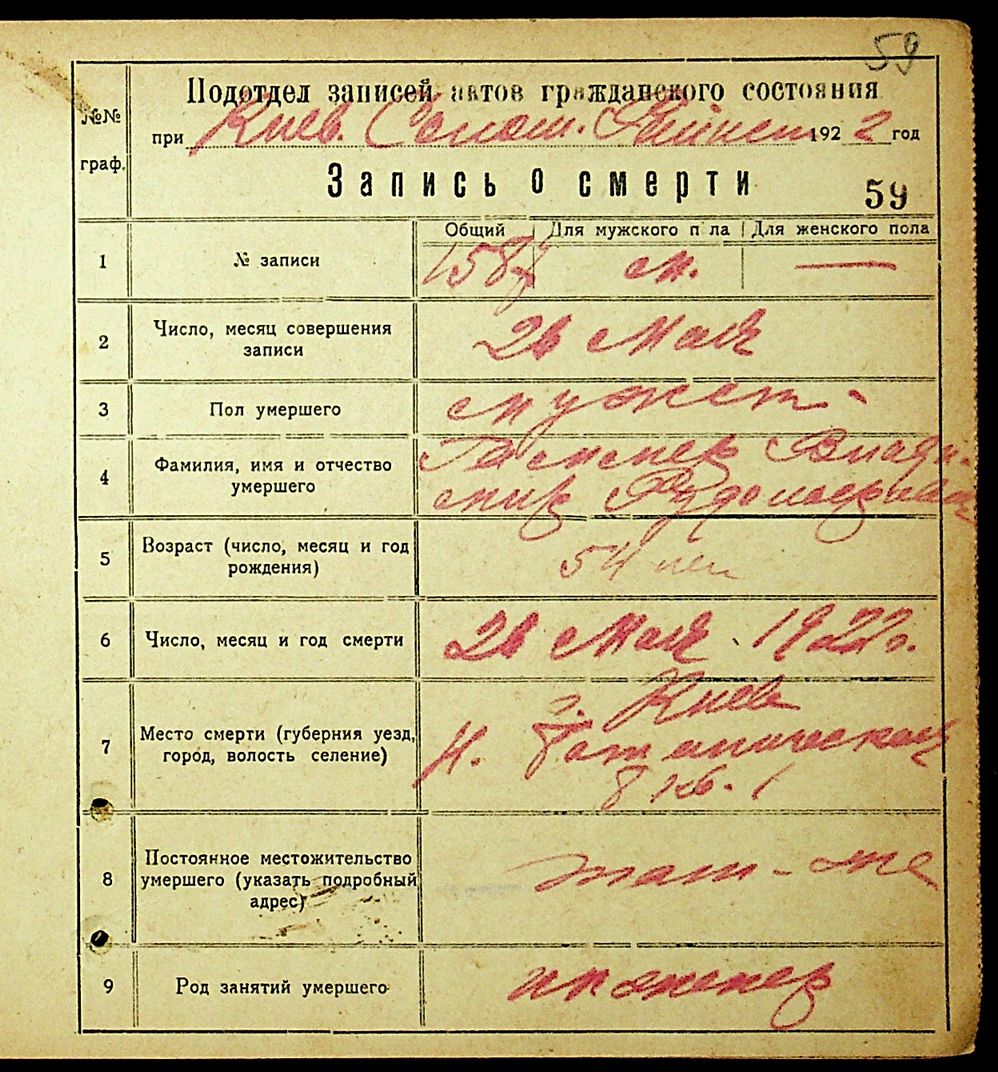 59
Подотдел записей актов гражданского состояния
при Киев. Солом. Районе 1922 год
№№ граф.
Запись о смерти
59
Общий Для мужского пола Для женского пола
1 № записи м. —
2 Число, месяц совершения записи
26 Мая
3 Пол умершего
мужск-
4 Фамилия, имя и отчество умершего
Влади-
мир Рудольфович
5 Возраст (число, месяц и год рождения)
54 лет
6 Число, месяц и год смерти
26 Мая 1922 г.
7 Место смерти (губерния уезд, город, волость селение)
г. Киев
Н. Ботаническая
8 кв. 1
8 Постоянное местожительство умершего (указать подробный адрес)
там-же
9 Род занятий умершего
инженер